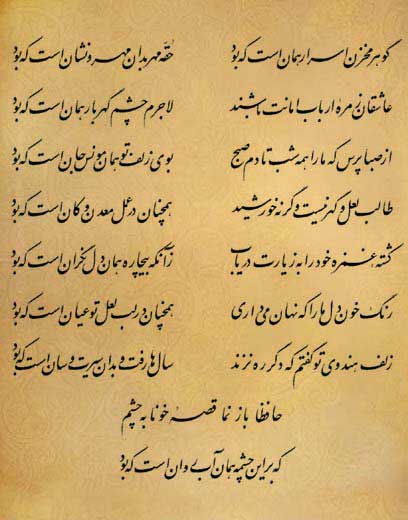 گوهر مخزن اسرار همان است که بود حقه مهر بدان مهر و نشان است که بود
عاشقان زمره ارباب امانت باشند لاجرم چشم گهربار همان است که بود
از صبا پرس که ما را همه شب تا دم صبح بوی زلف تو همان مونس جان است که بود
طالب لعل و گهر نیست وگرنه خورشید همچنان در عمل معدن و کان است که بود
کشته غمزه خود را به زیارت دریاب زآنکه بیچاره همان دل‌نگران است که بود
رنگ خون دل ما را که نهان می‌داری همچنان در لب لعل تو عیان است که بود
زلف هندوی تو گفتم که دگر ره نزند سال‌ها رفت و بدان سیرت و سان است که بود
حافظا بازنما قصه خونابه چشم
که بر این چشمه همان آب روان است که بود